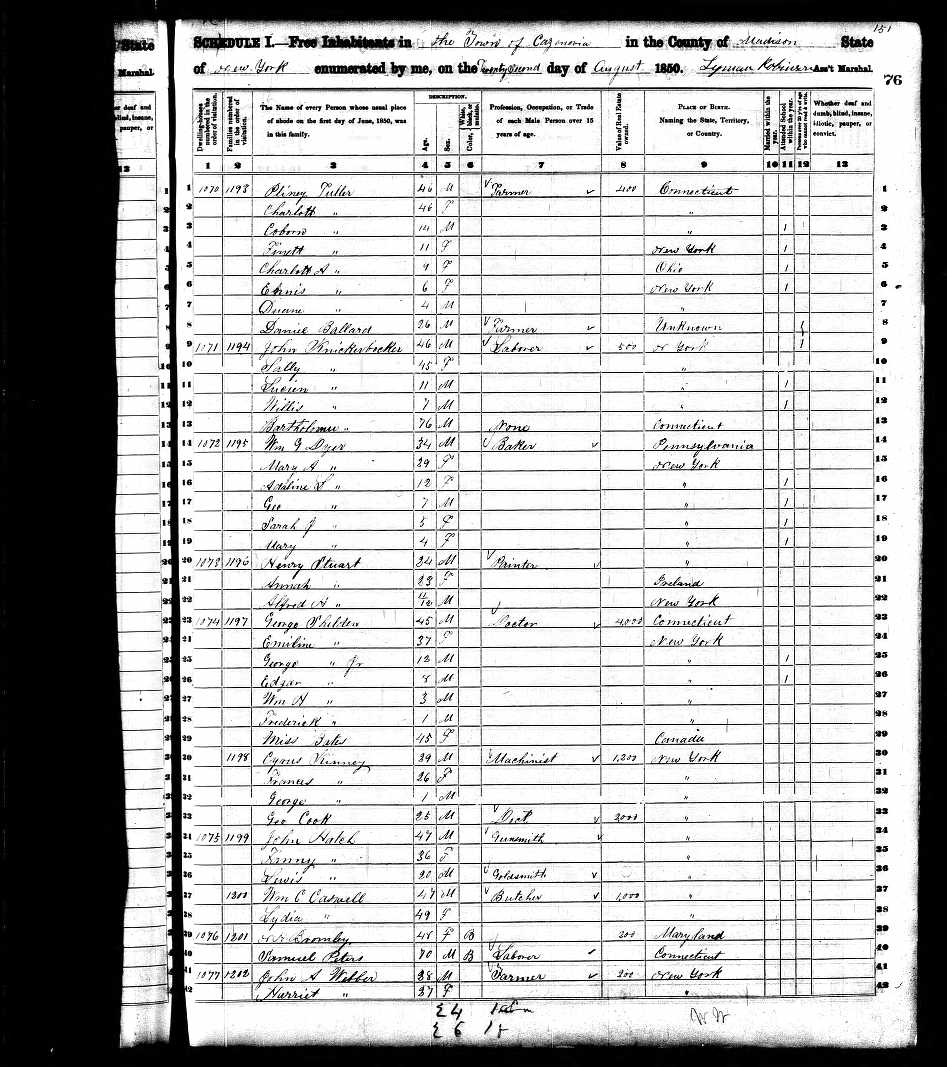 151
State
SCHEDULE I.—Free Inhabitants in the Town of Cazenovia in the County of Madison State
Marshal.
of New York enumerated by me, on the Twenty Second day of August 1850. Lyman Ass't Marshal.
76
DESCRIPTION.
Dwelling-houses numbered in the order of visitation.
Families numbered in the order of visitation.
The Name of every Person whose usual place of abode on the first day of June, 1850, was in this family.
Age.
Sex.
White, black, or mulatto.
Color,
Profession, Occupation, or Trade of each Male Person over 15 years of age.
Value of Real Estate owned.
PLACE OF BIRTH. Naming the State, Territory, or Country.
Married within the year.
Attended School within the year.
Persons over 20 y'rs of age who cannot read & write.
Whether deaf and dumb, blind, insane, idiotic, pauper, or convict.
1 2 3 4 5 6 7 8 9 10 11 12 13
1 1070 1193 Pliney Tuller 46 M Farmer 400 Connecticut 1
2 Charlott " 46 F " 2
3 Coborn " 14 M " 1 3
4 " 11 F New York 1 4
5 Charlott A " 9 F Ohio 1 5
6 " 6 F New York 1 6
7 Duane " 4 M " 7
8 Daniel Ballard 26 M Farmer Unknown 1 8
9 1071 1194 John Knickerbocker 46 M Labover 500 N York 1 9
10 Sally " 45 F " 10
11 Lucien " 11 M " 1 11
12 Willis " 7 M " 1 12
13 Bartholmu " 76 M None Connecticut 13
14 1072 1195 Wm G Dyer 34 M Baker Pennsylvania 14
15 Mary A " 29 F New York 15
16 Adaline S " 12 F " 1 16
17 Geo " 7 M " 1 17
18 Sarah J " 5 F " 1 18
19 Mary " 4 F " 1 19
20 1073 1196 Henry Stuart 24 M Printer " 20
21 Annah " 23 F Ireland 21
22 Alfred H " M New York 22
23 1074 1197 George Shelden 45 M Doctor 4,000 Connecticut 23
21 Emiline " 37 F New York 24
25 George " Jr 12 M " 1 25
26 Edgar " 8 M " 1 26
27 Wm H " 3 M " 27
28 Frederick " 1 M " 28
29 Miss 45 F Canada 29
30 1198 Cyrus Kinney 29 M Machinist 1,200 New York 30
31 Frances " 26 F " 31
32 George " 1 M " 32
33 Geo Cook 25 M 2000 " 33
34 1075 1199 John Hatch 47 M Gunsmith " 34
35 " 36 F " 35
36 Lewis " 20 M Goldsmith " 36
37 1200 Wm C Caswell 47 M Butcher 1,000 " 37
38 Lydia " 49 F " 38
39 1076 1201 Bromley 48 F B 200 Maryland 39
40 Samuel Peters 70 M B Labover Connecticut 40
41 1077 1202 John A Webber 38 M Farmer 200 New York 41
42 Harriet " 37 F " 42